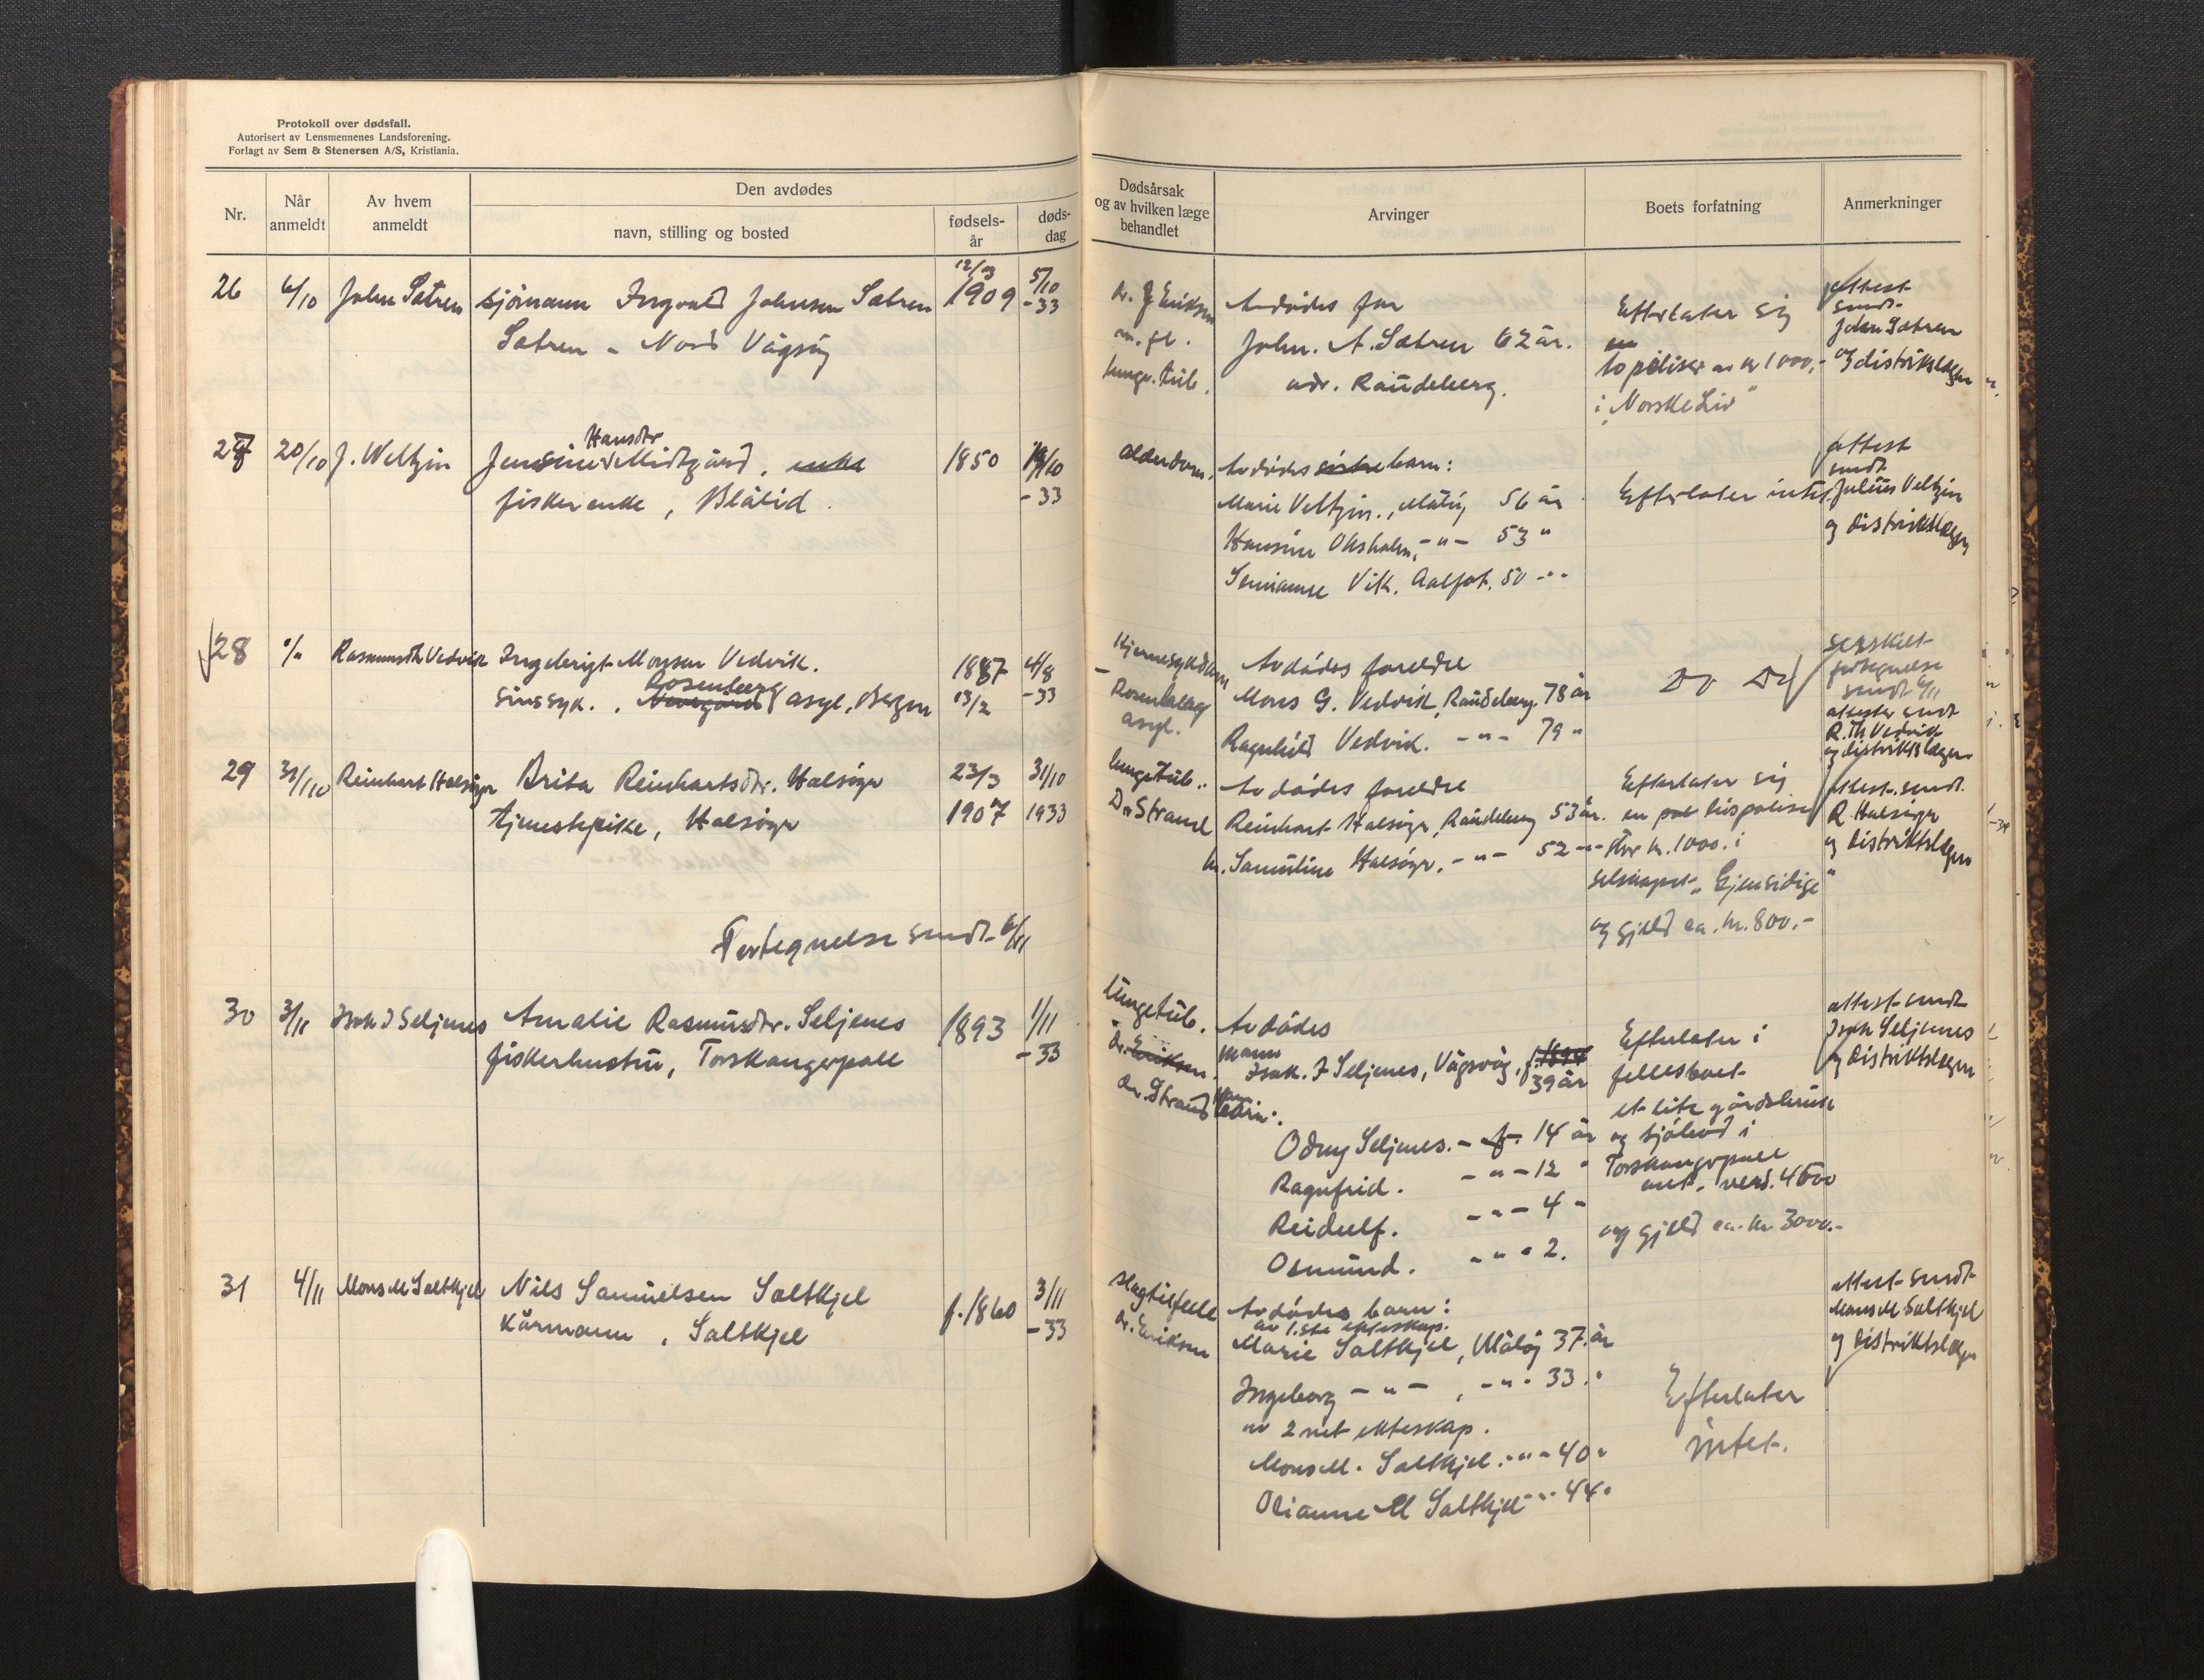 Protokoll over dødsfall.
Autorisert av Lensmennenes Landsforening.
Forlagt av Sem & Stenersen A/S, Kristiania.
Nr.
Når anmeldt
Av hvem anmeldt
Den avdødes
navn, stilling og bosted
fødsels-år
døds-dag
Dødsårsak og av hvilken læge behandlet
Arvinger
Boets forfatning
Anmerkninger
26 6/10 John Sætren sjømann Ingvald Johnsen Sætren 1909 5/10
Sætren - Nord Vågsøy -33
m. fl.
lunge. tub.
Avdødes far
John. A. Sætren 62 år.
adr. Raudeberg.
Efterlater sig
to poliser av kr 1000,-
i "Norske Liv"
attest
sendt
John Sætren
og distriktslægen
27 20/10 J. Weltzin Jensine Hansdtr Midtgård, enke 1850 19/10
fiskerenke, Blålid. -33
alderdom.
Avdødes søstre barn:
Marie Veltzin., Måløy 56 år
Hansine Oksholm, -"- 53 "
Vik. Aalfot. 50 -"-
Efterlater intet
attest
sendt
Julius Veltzin
og distriktslægen
28 "/" Rasmus Th Vedvik Ingebrigt Monsen Vedvik. 1887 4/8
sinssyk. , Neevgård Rosenberg asyl, Bergen 13/2 -33
Hjernesykdom
Rosenberg
asyl.
Avdødes foreldre
Mons G. Vedvik, Raudeberg. 78 år
Ragnhild Vedvik. -"- 79 "
Do Do
særskilt
fortegnelse
sendt 6/11
attester sendt
R. Th Vedvik
og distriktslægen
29 31/10 Reinhart Halsør Brita Reinhartsdtr. Halsør 23/3 31/10
tjenestepike, Halsør 1907 1933
lungetub.
Dr Strand
Avdødes foreldre
Reinhart Halsør, Raudeberg 53 år.
Samuline Halsør. -"- 52 -"-
Efterlater sig
en pol livspolise
stor kr. 1000. i
selskapet "Gjensidige"
og gjeld ca. kr. 800.-
attest. sendt.
R. Halsør
og distriktslægen
Fortegnelse sendt 6/11
30 3/11 Isak J Seljenes Amalie Rasmusdtr. Seljenes 1893 1/11
fiskerhustru, Torskangerpoll -33
lungetub.
dr. Eriksen.
dr. Strand
Avdødes
mann
Isak. J Seljenes, Vågsvåg, f. 1894
39 år
barn:
Odny Seljenes. - f. 14 år
Ragnfrid. -"- 12 "
Reidulf. -"- 4 "
Osmund. -"- 2.
Efterlater i
fellesboet
et lite gårdsbruk
og sjøbod i
Torskangerpoll
ant. verd. 4500
og gjeld ca. kr 3000.-
attest sendt
Isak Seljenes
og distriktslægen
31 4/11 Mons M Saltkjel Nils Samuelsen Saltkjel f. 1860 3/11
Kårmann, Saltkjel -33
slagtilfelle
dr. Eriksen
Avdødes barn:
av 1.ste ekteskap.
Marie Saltkjel, Måløy 37. år
Ingeborg -"- , -"- 33. "
av 2net ekteskap.
Mons M. Saltkjel. -"- 40 "
Olianne M Saltkjel -"- 44 "
Efterlater
intet.
attest sendt
Mons M Saltkjel
og distriktslægen